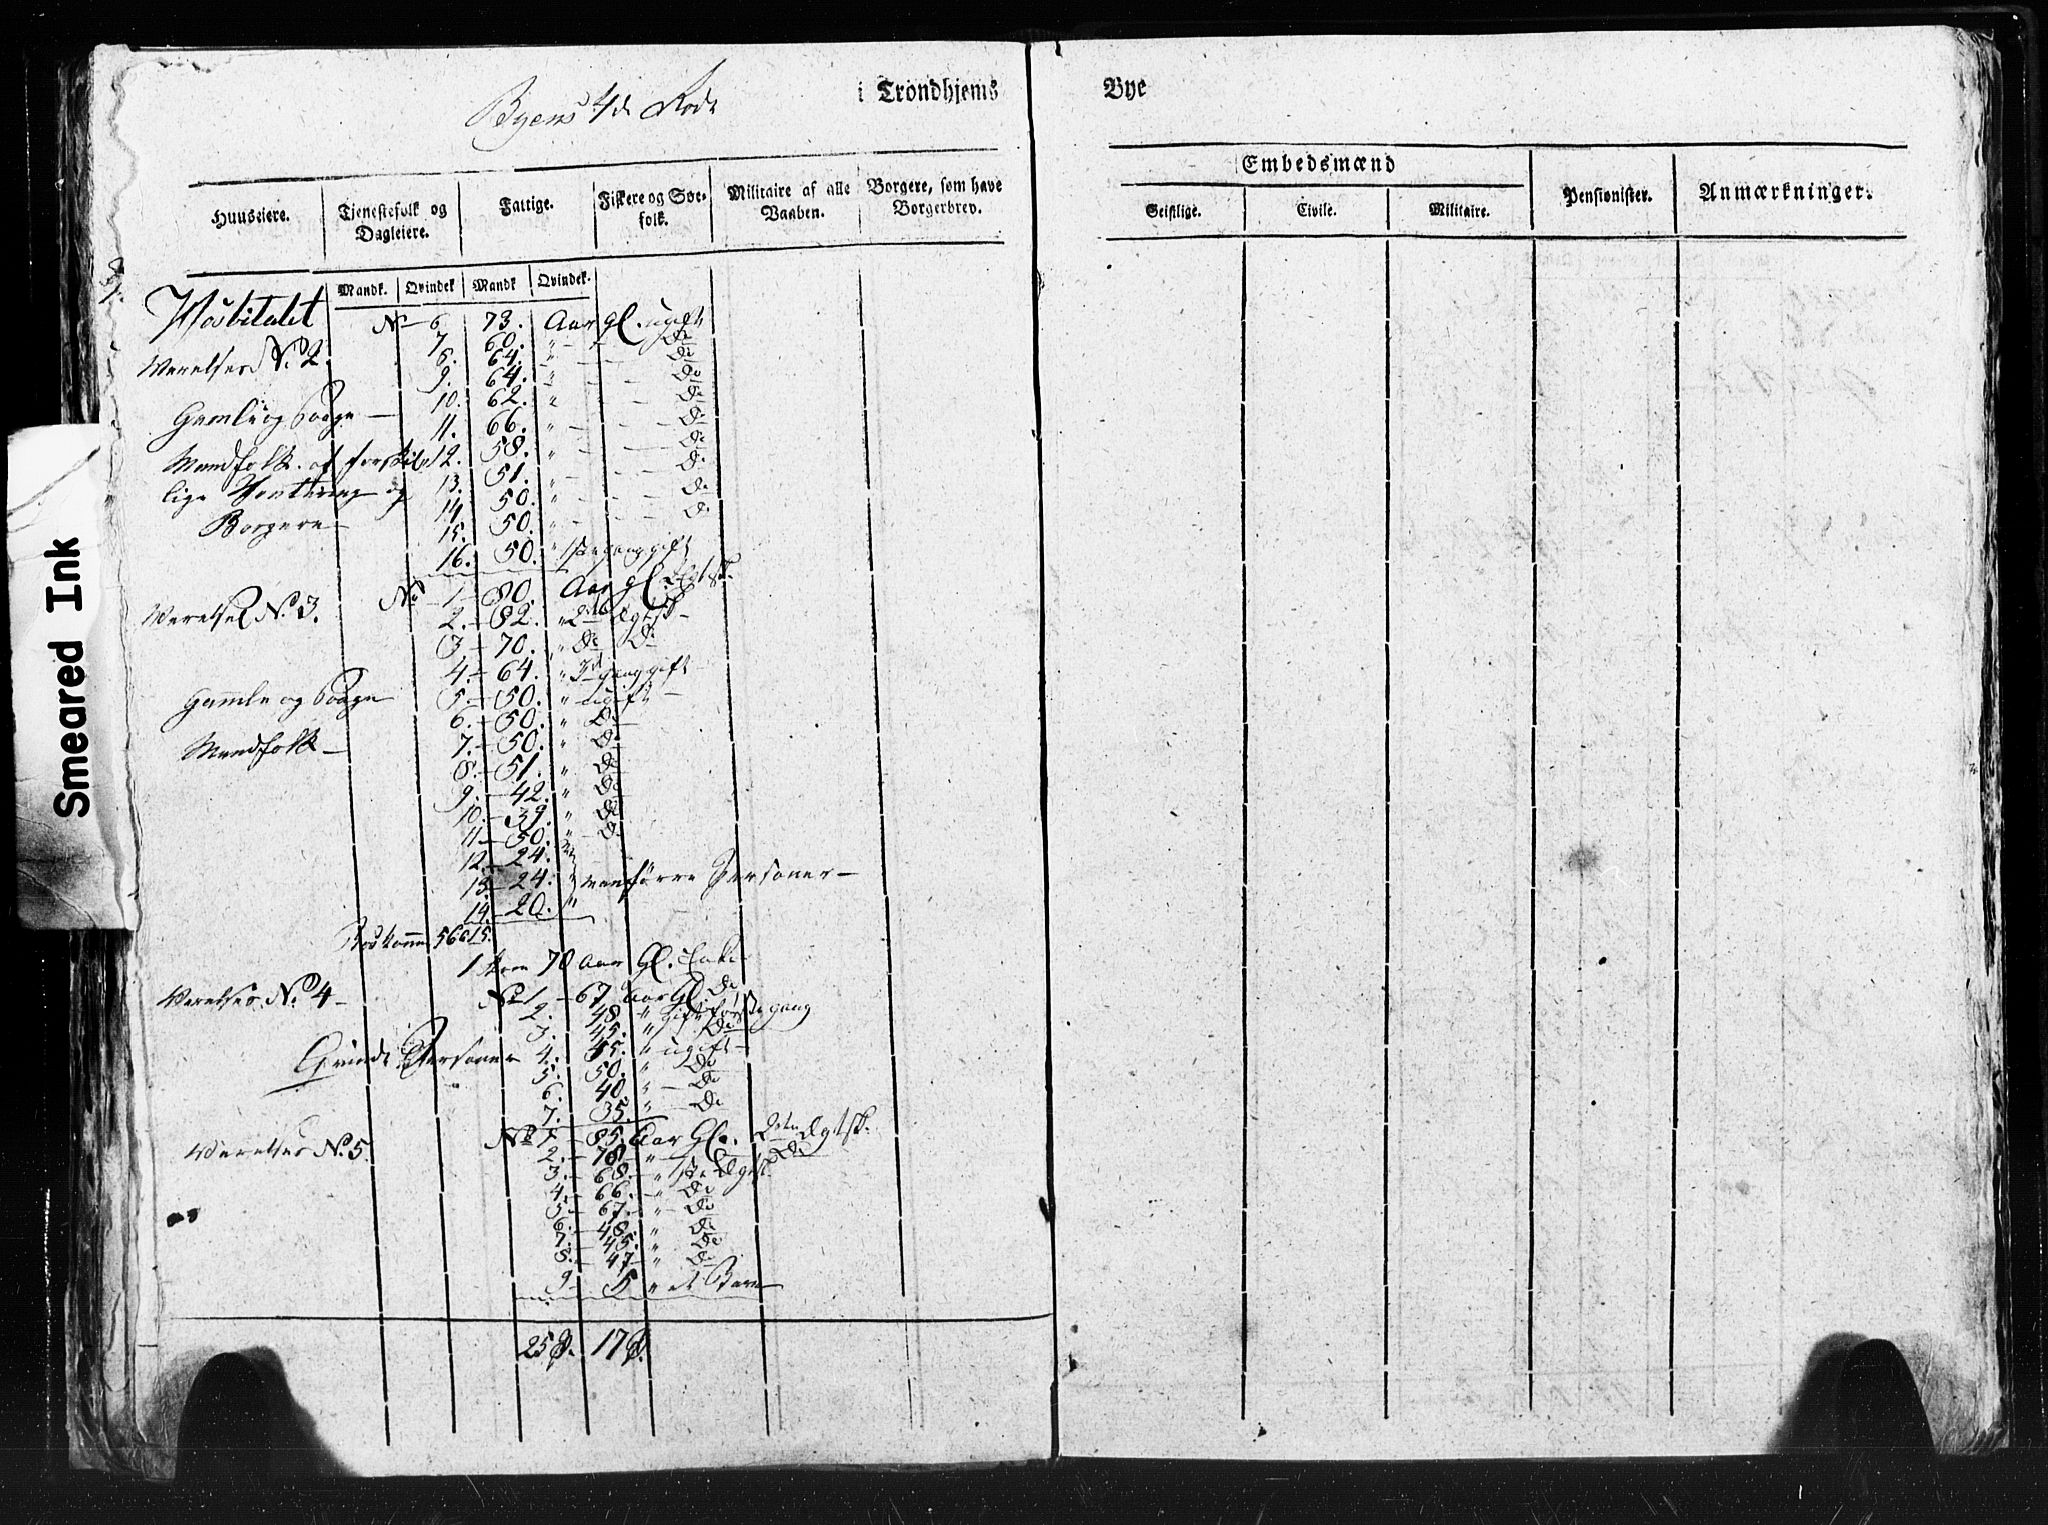 Smeared Ink
Byens 4de Rode i Trondhjems Bye
Huuseiere. Tjenestefolk og Dagleiere. Fattige. Fiskere og Søefolk. Militaire af alle Vaaben. Borgere, som have Borgerbrev. Embedsmænd Pensionister. Anmærkninger.
Geistlige. Civile. Militaire.
Mandk. Qvindek Mandk Qvindek.
Hosbitalet No 6 73. Aar gl. ugift
7. 60. " Do
Værelses No. 2. 8. 64. " Do
9. 64. " Do
10. 62. " Do
Gamle og 11. 66. " Do
12. 58. " Do
Mandfolk af forskiel 13. 51. " Do
lige og 14. 50. " Do
Borgere 15. 50. " Do
16. 50. " 1ste gang gift
Værelse No. 3. No 1 80. Aar gl.
2. 82. " 2de Egtsk
3 70. " Do Do
4. 64. " 3d gang gift
Gamle og 5. 50. " ugift
6. 50. " Do
Mandfolk 7. 50. " Do
8. 51. " Do
9. 42. " Do
10. 39. " Do
11 50. " Do
12. 24. "
13. 24. " vanførre Personer
14. 20. "
15.
1 70 Aar Gl. Enke
Værelses No. 4 No 1 67 Aar Gl Do
2. 48 " Gift første gang
3. 45. " Do
Personer 4. 45. " ugift
5. 50. " Do
6. 40. " Do
7. 35. " Do
Værelses No. 5. No 1 85. Aar Gl. 2den Egtsk.
2. 78 " Do
3. 68. " 1ste Egtsk.
4. 66. " Do
5. 67. " Do
6. 48. " Do
7. 45. " Do
8. 47 " Do
9 5 " et Barn
25 P. 17 P.